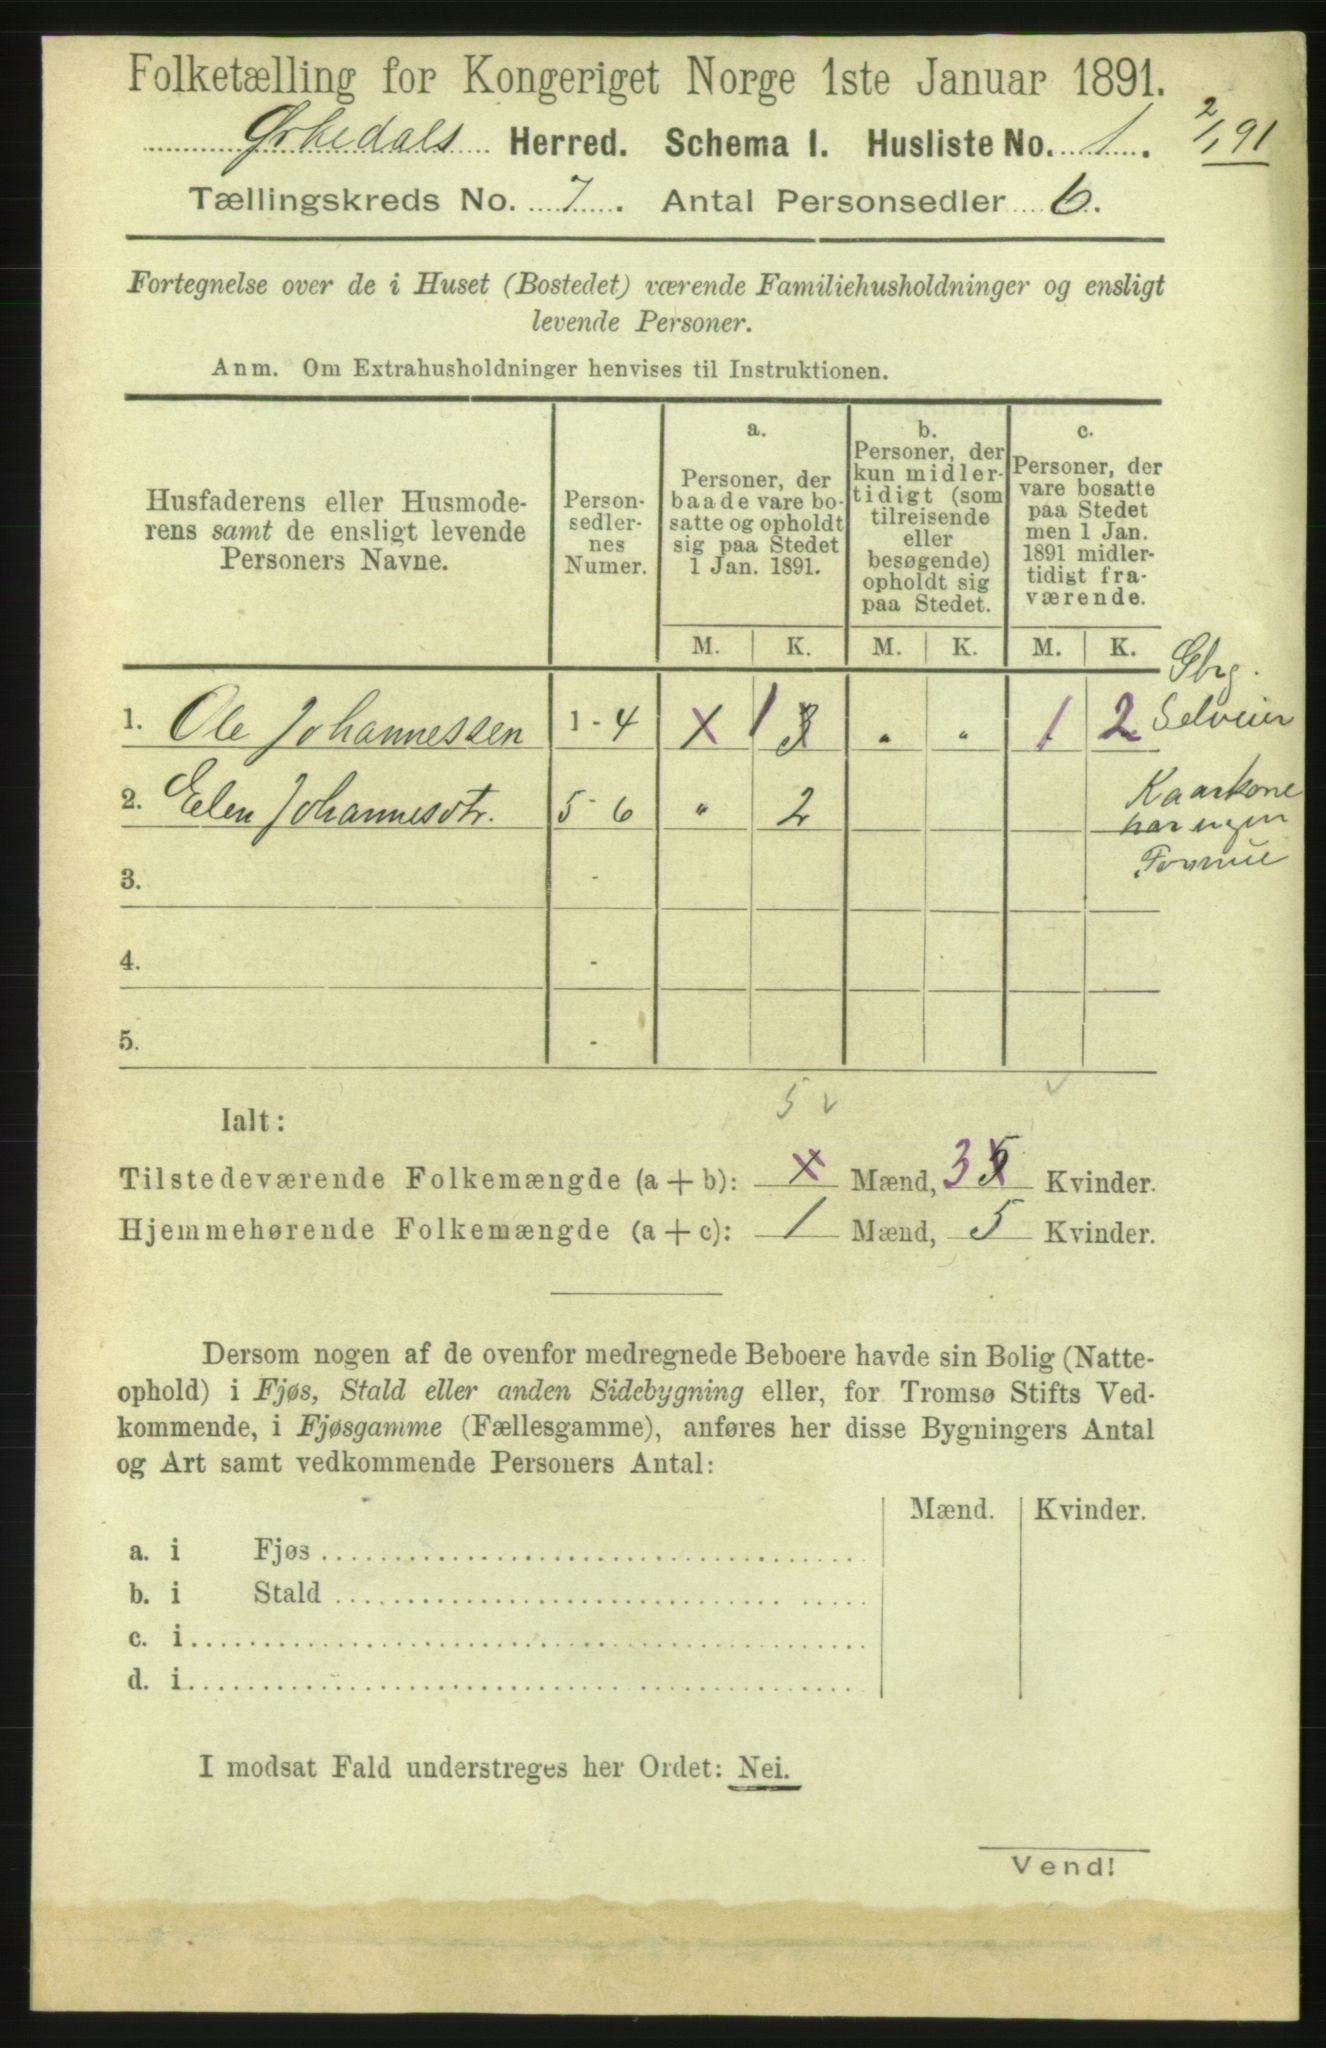 Folketælling for Kongeriget Norge 1ste Januar 1891.
Ørkedals Herred. Schema I. Husliste No. 1. 2/1 91
Tællingskreds No. 7. Antal Personsedler 6.
Fortegnelse over de i Huset (Bostedet) værende Familiehusholdninger og ensligt
levende Personer.
Anm. Om Extrahusholdninger henvises til Instruktionen.
Husfaderens eller Husmode-
rens samt de ensligt levende
Personers Navne.
Person-
sedler-
nes
Numer.
a.
Personer, der
baade vare bo-
satte og opholdt
sig paa Stedet
1 Jan. 1891.
b.
Personer, der
kun midler-
tidigt (som
tilreisende
eller
besøgende)
opholdt sig
paa Stedet.
c.
Personer, der
vare bosatte
paa Stedet
men 1 Jan.
1891 midler-
tidigt fra-
værende.
M. K. M. K. M. K.
Gbrg.
1. Ole Johannessen 1 - 4 X 1 3 " " 1 2 Selveier
2. Elen Johannesdtr. 5 - 6 " 2
Kaarkone
har ingen
Formue
3. -
4. -
5. -
5 v v
Ialt:
Tilstedeværende Folkemængde (a + b): x Mænd, 3 5 Kvinder.
Hjemmehørende Folkemængde (a + c): 1 Mænd, 5 Kvinder.
Dersom nogen af de ovenfor medregnede Beboere havde sin Bolig (Natte-
ophold) i Fjøs, Stald eller anden Sidebygning eller, for Tromsø Stifts Ved-
kommende, i Fjøsgamme (Fællesgamme), anføres her disse Bygningers Antal
og Art samt vedkommende Personers Antal:
Mænd. Kvinder.
a. i Fjøs
b. i Stald
c. i
d. i
I modsat Fald understreges her Ordet: Nei.
Vend!